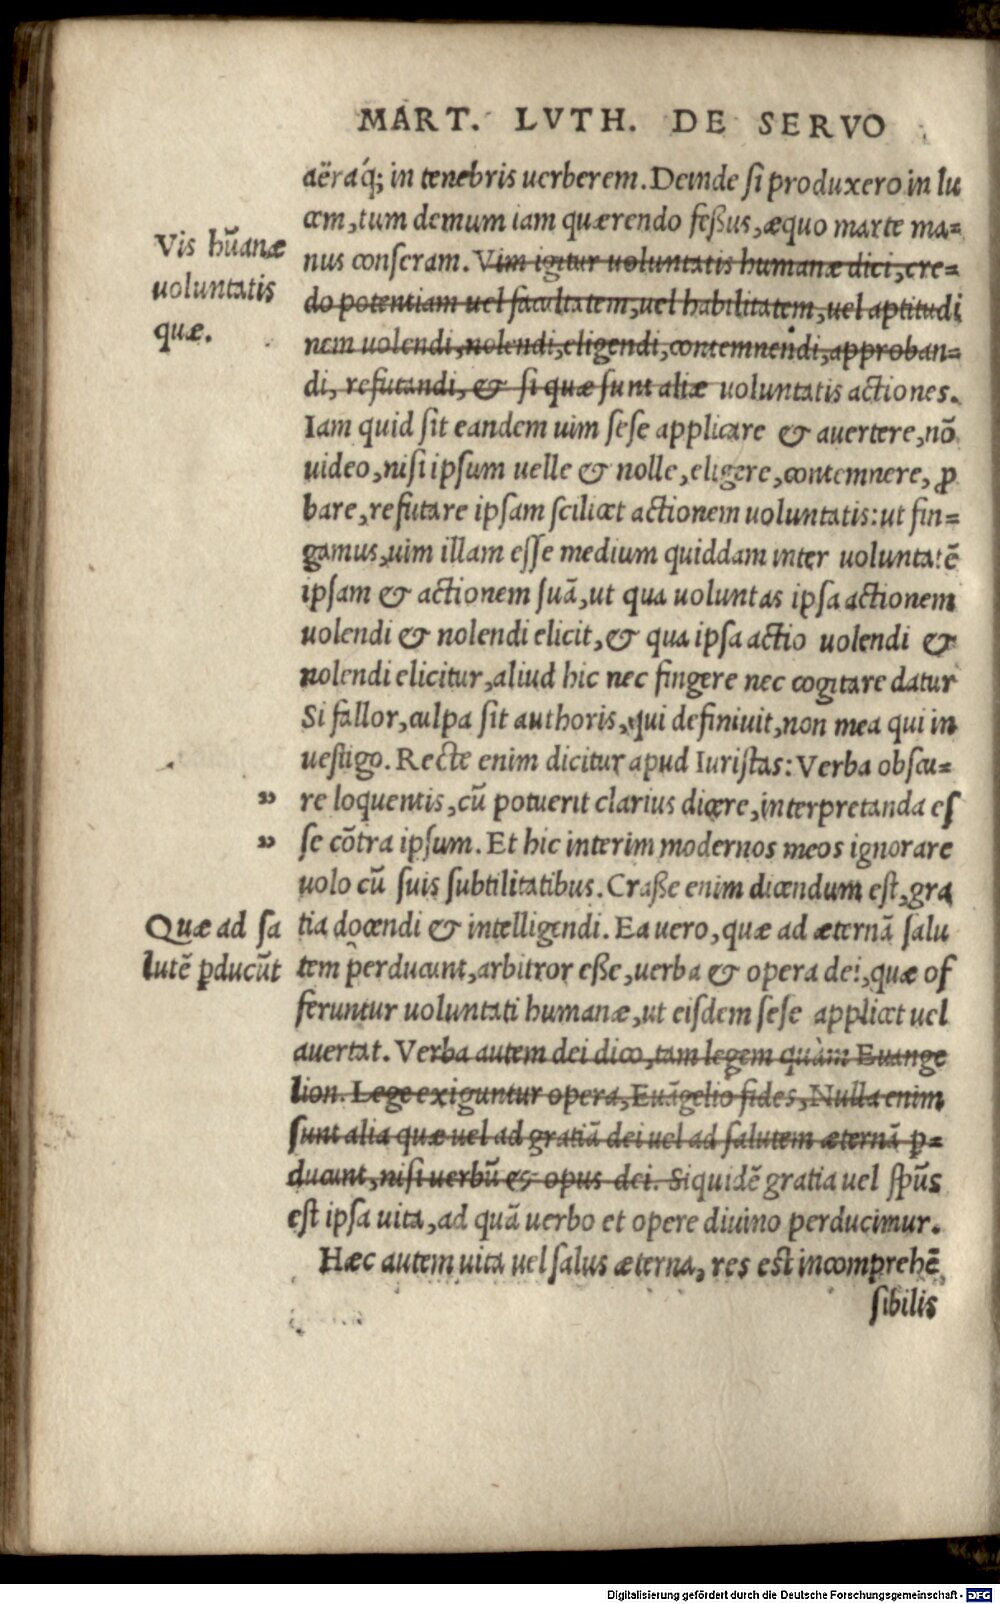 MART. LVTH. DE SERVO
aëraq́; in tenebris uerberem. Deinde si produxero in lu
cem, tum demum iam quærendo feßus, æquo marte ma-
Vis hūanæ
uoluntatis
quæ.
nus conseram. Vim igitur uoluntatis humanæ dici, cre-
do potentiam uel facultatem, uel habilitatem, uel aptitudi
nem uolendi, nolendi, eligendi, contemnendi, approban-
di, refutandi, & si quæ sunt aliæ uoluntatis actiones.
Iam quid sit eandem uim sese applicare & auertere, nō
uideo, nisi ipsum uelle & nolle, eligere, contemnere, ꝓ
bare, refutare ipsam scilicet actionem uoluntatis: ut fin-
gamus, uim illam esse medium quiddam inter uoluntatē
ipsam & actionem suā, ut qua uoluntas ipsa actionem
uolendi & nolendi elicit, & qua ipsa actio uolendi &
nolendi elicitur, aliud hic nec fingere nec cogitare datur
Si fallor, culpa sit authoris, qui definiuit, non mea qui in
uestigo. Recte enim dicitur apud Iuristas: Verba obscu-
„ re loquentis, cū potuerit clarius dicere, interpretanda es
„ se cōtra ipsum. Et hic interim modernos meos ignorare
uolo cū suis subtilitatibus. Craße enim dicendum est, gra
Quæ ad sa
lutē ꝑducūt
tia docendi & intelligendi. Ea uero, quæ ad æternā salu
tem perducunt, arbitror eße, uerba & opera dei, quæ of
feruntur uoluntati humanæ, ut eisdem sese applicet uel
auertat. Verba autem dei dico, tam legem quàm Euange
lion. Lege exiguntur opera, Euāgelio fides, Nulla enim
sunt alia quæ uel ad gratiā dei uel ad salutem æternā ꝑ-
ducunt, nisi uerbū & opus dei. Siquidē gratia uel spūs
est ipsa uita, ad quā uerbo et opere diuino perducimur.
Hæc autem uita uel salus æterna, res est incomprehē
sibilis
Digitalisierung gefördert durch die Deutsche Forschungsgemeinschaft - DFG